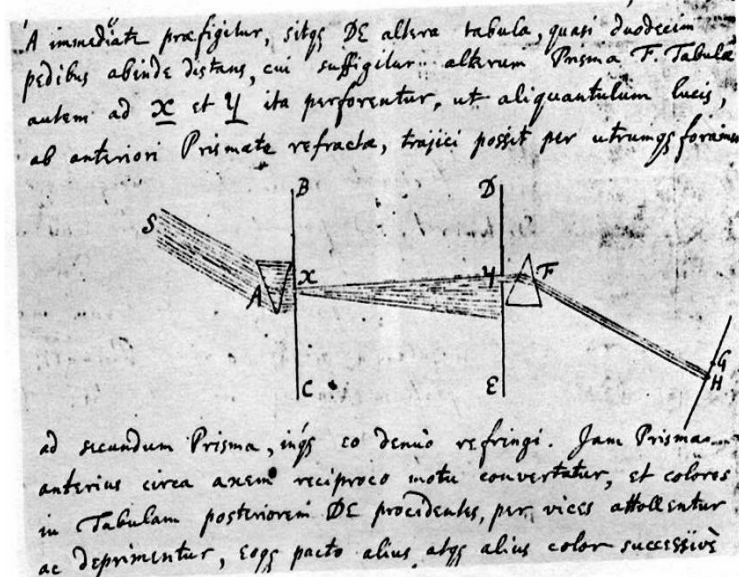 A immediatè præfigitur, sitqꝫ DE altera tabula, quasi duodecim
pedibus abinde distans, cui suffigitur alterum Prisma F. Tabulæ
autem ad x et y ita perforentur, ut aliquantulum lucis,
ab anteriori Prismate refractæ, trajici possit per utrumqꝫ foramen
B D
S x y F
A
G
H
C E
ad secundum Prisma, inqꝫ eo denuò refringi. Jam Prisma
anterius circa axem reciproco motu convertatur, et colores
in Tabulam posteriorem DE procidentes, per vices attollentur
ac deprimentur, eoqꝫ pacto alius atqꝫ alius color successivè